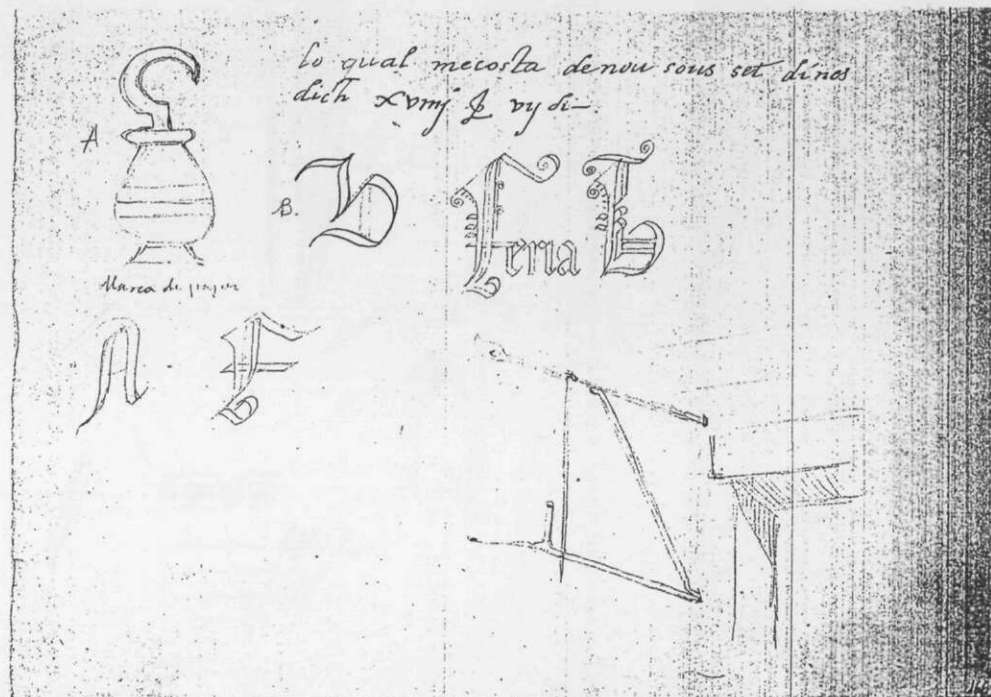 lo qual mecosta denou sous set dines
dich xviiij vij di—
A
B. b feria b
Marca de paper
A f